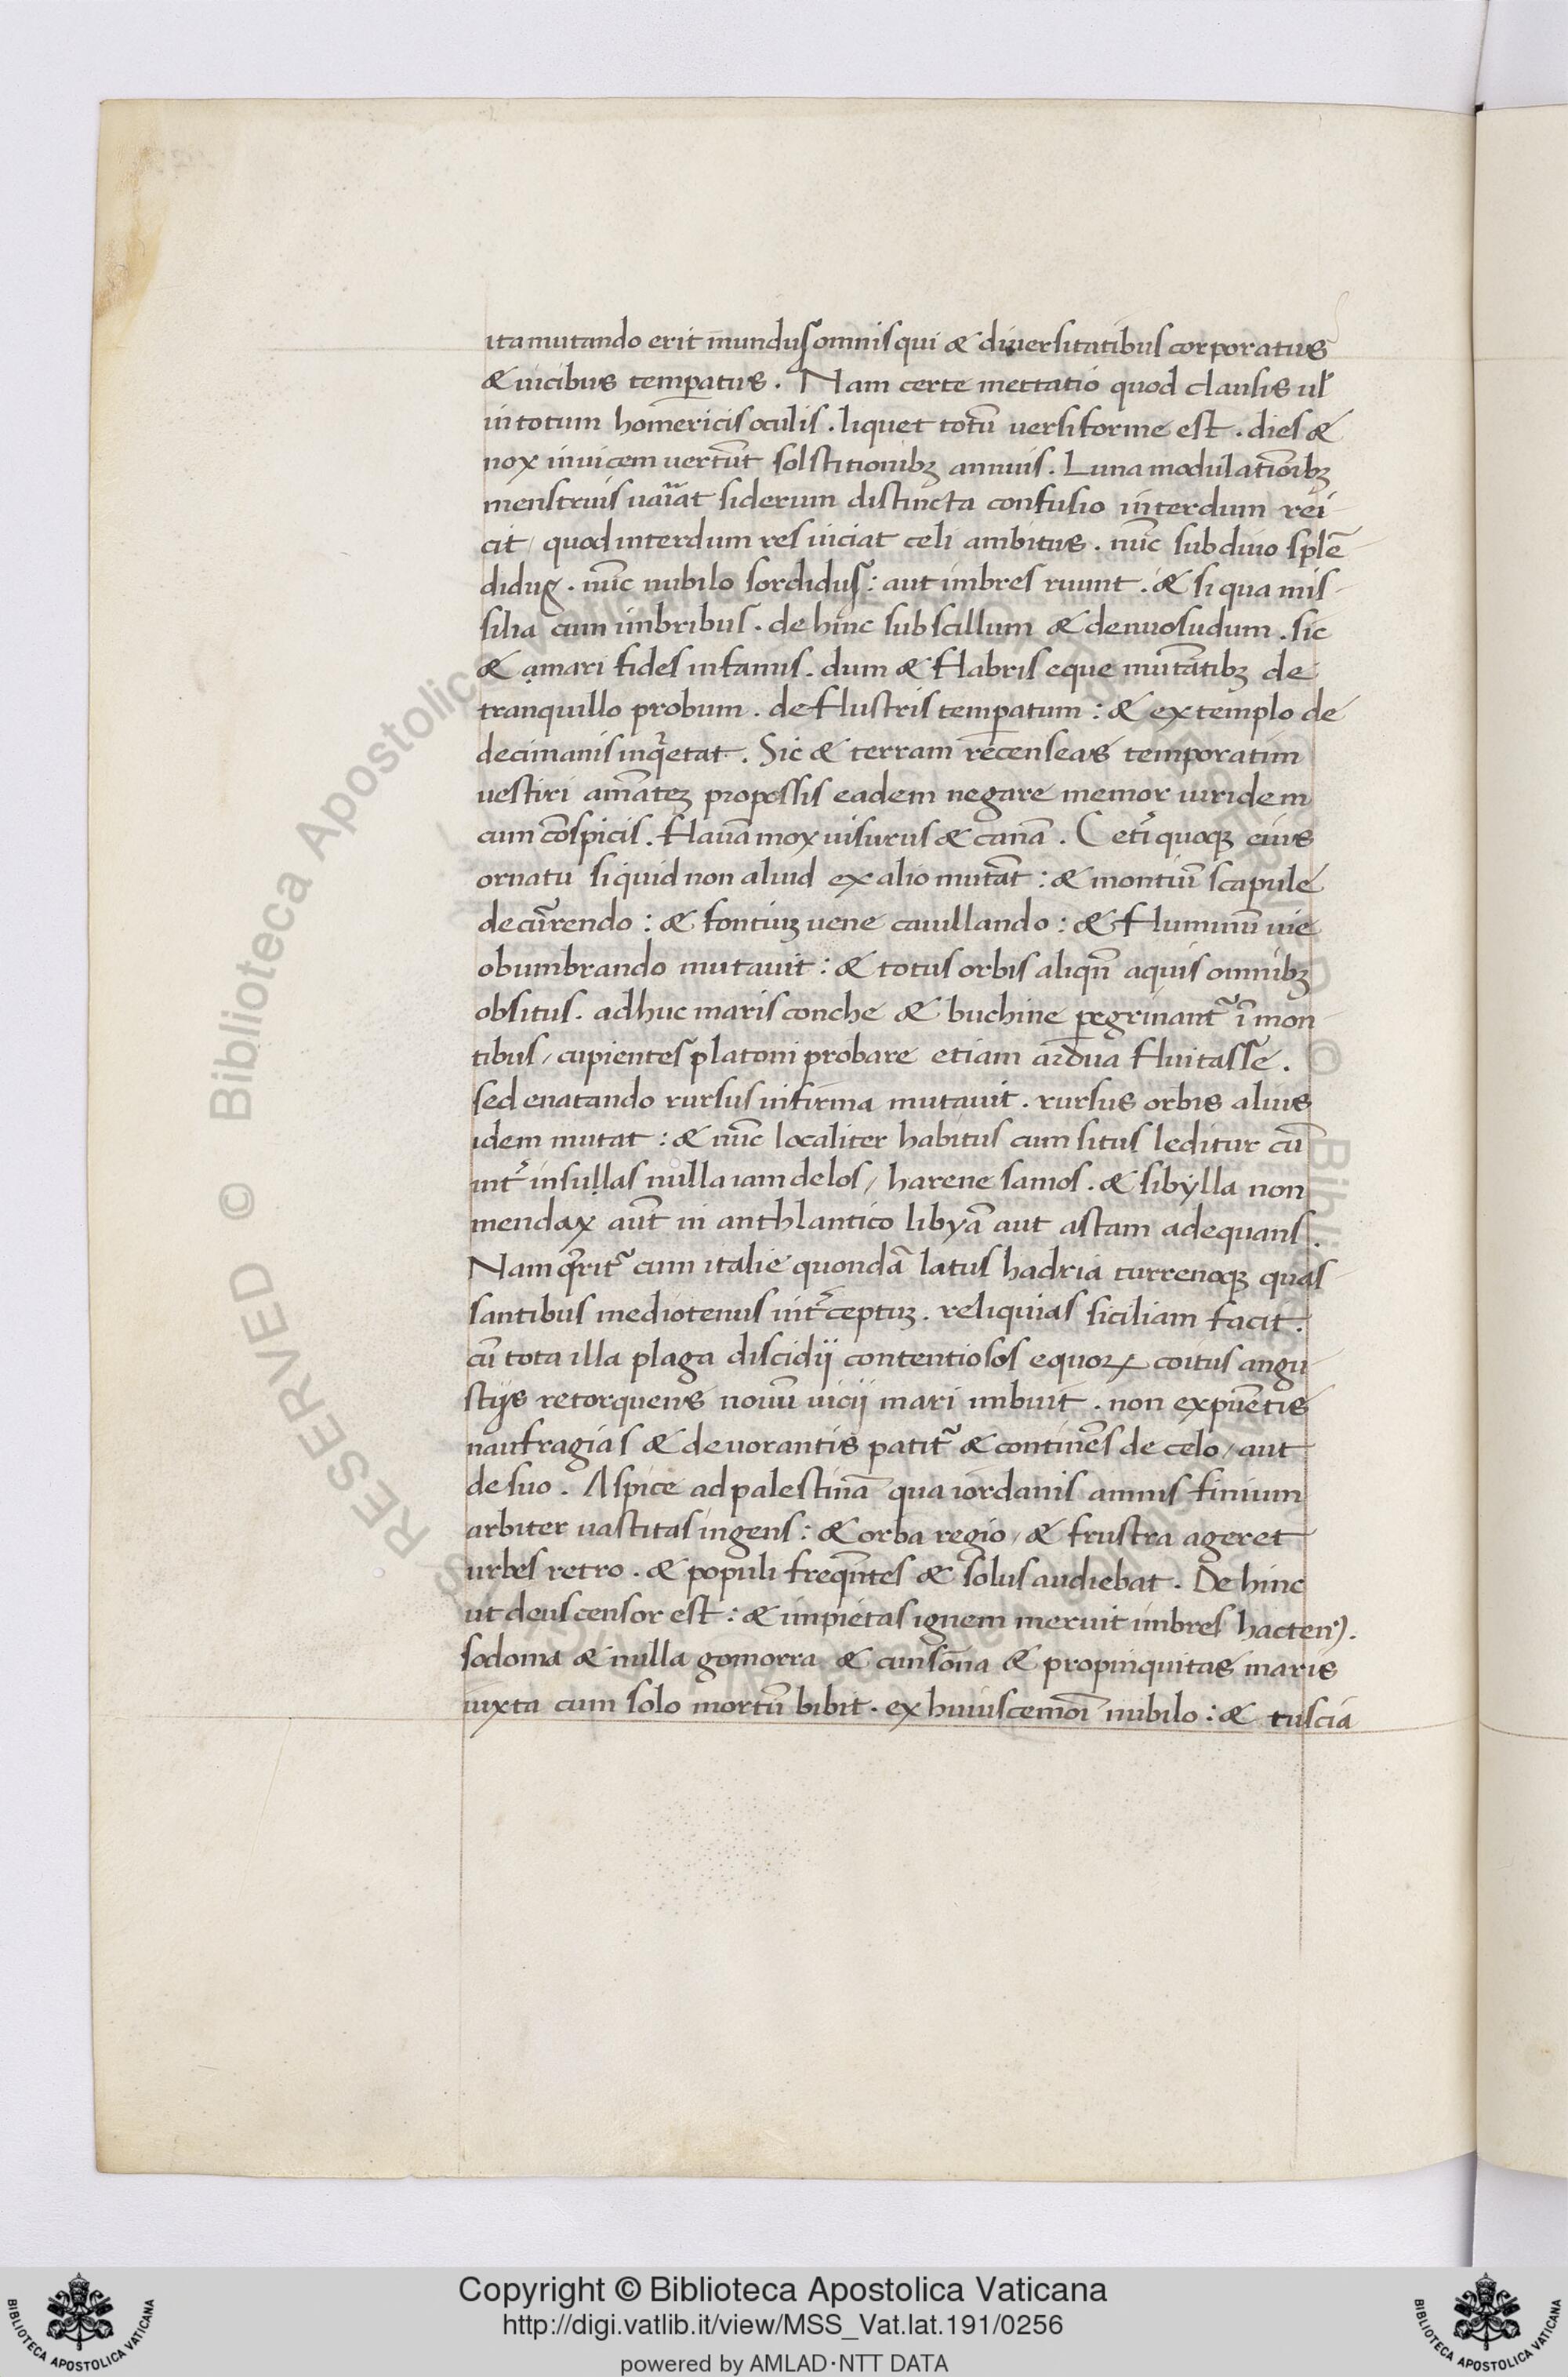 ita mutando erit mundus omnis qui & diuersitatibus corporatus
& uicibus temperatus . Nam certe mettatio quod clausis ul̄
in totum homericis oculis . liquet totū uersiforme est . dies &
nox inuicem uertūt solstitionibꝫ annuis . Luna modulatiōibꝫ
menstruis uariat siderum distincta confusio interdum rei
cit / quod interdum res iiciat celi ambitus . nūc sub diuo splē
didus . nūc nubilo sordidus : aut imbres ruunt . & si qua mis-
silia cum imbribus . de hinc subscillum & denuo sudum . sic
& amari fides infamis . dum & flabris eque mutātibꝫ de
tranquillo probum . de flustris temperatum : & extemplo de
decimanis inqetat . Sic & terram recenseas temporatim
uestiri amāteꝫ propessis eadem negare memor uiridem
cum cōspicis . flauā mox uisurus & canā . Ceti quoqꝫ eius
ornatu siquid non aliud ex alio mutāt : & montiū scapule
decurrendo : & fontiuꝫ uene cauillando : & fluminū uie
obumbrando mutauit : & totus orbis aliqn̄ aquis omnibꝫ
obsitus . adhuc maris conche & buchine peregrinant̄ ī mon
tibus / cupientes platoni probare etiam ardua fluitasse .
sed enatando rursus infirma mutauit . rursus orbis alius
idem mutat : & nūc localiter habitus cum situs leditur cū
int̄ insullas nulla iam delos / harene samos . & sibylla non
mendax aūt in anthlantico libyā aut astam adequans .
Nam q̄rit̄ cum italie quondā latus hadria turrenoqꝫ quas
santibus mediotenus int̄ceptuꝫ . reliquias siciliam facit .
cū tota illa plaga discidij contentiosos equoꝝ coitus angu
stijs retorquens nouū uicij mari imbuit . non expuētis
naufragias & deuorantis patit̄ & continēs de celo / aut
de suo . Aspice ad palestinā qua iordanis amnis finium
arbiter uastitas ingens : & orba regio / & frustra ageret
urbes retro . & populi freqn̄tes & solus audiebat . De hinc
ut deus censor est : & impietas ignem meruit imbres hacten⁹ .
sodoma & nulla gomorra & cinis ōnia & propinquitas maris
iuxta cum solo mortū bibit . ex huiuscemōi nubilo : & tuscia
RESERVED © Biblioteca Apostolica
Copyright © Biblioteca Apostolica Vaticana
http://digi.vatlib.it/view/MSS_Vat.lat.191/0256
powered by AMLAD·NTT DATA
BIBLIOTECA APOSTOLICA VATICANA
BIBLIOTECA APOSTOLICA VATICANA